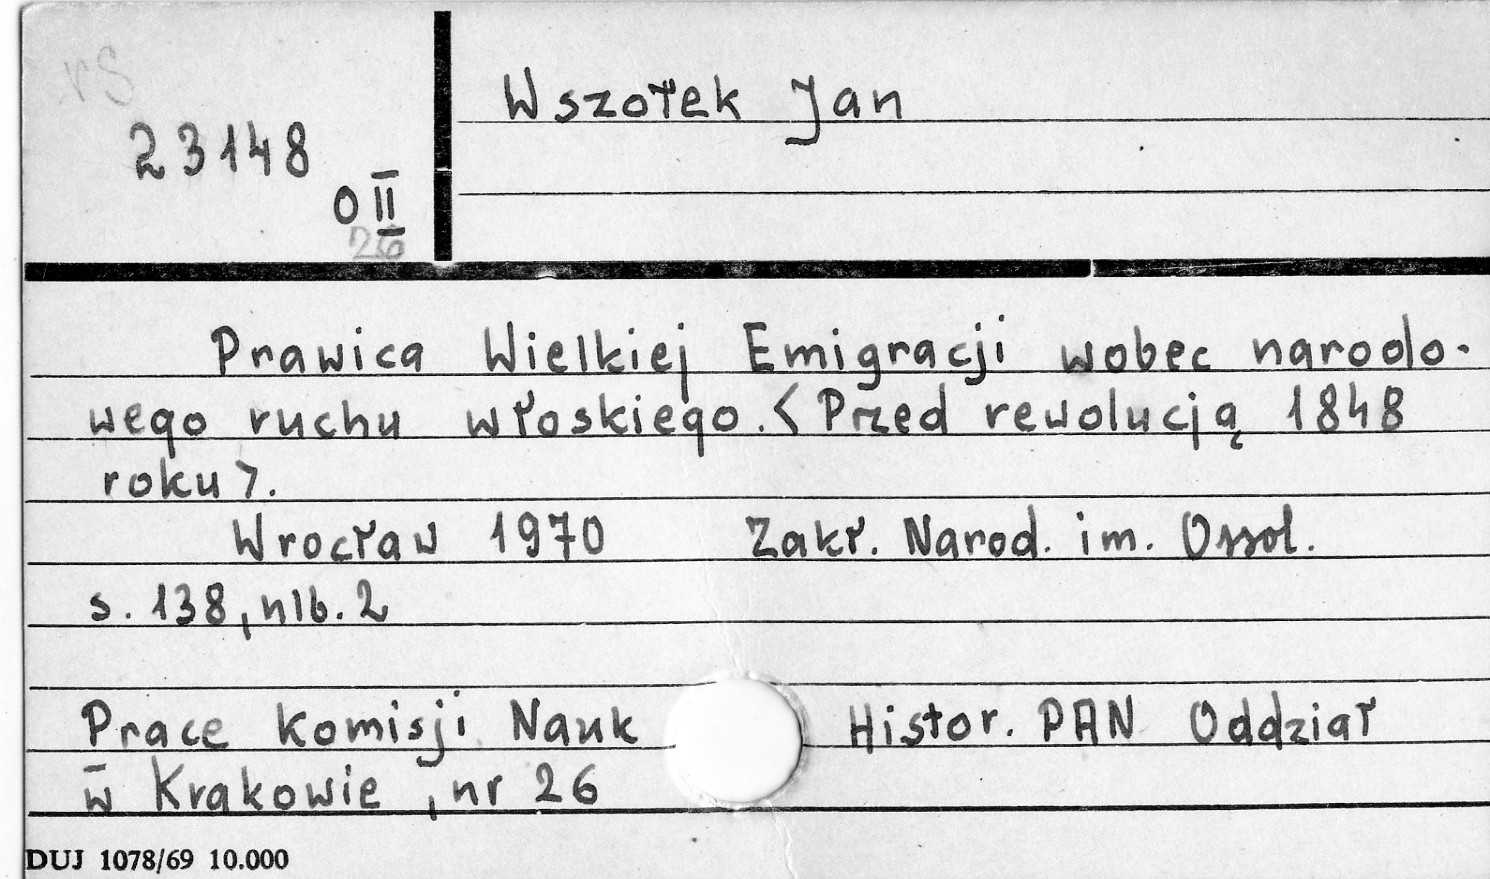 23148
O II
26
Wszołek Jan
Prawica Wielkiej Emigracji wobec narodo-
wego ruchu włoskiego. <Przed rewolucją 1848
roku>.
Wrocław 1970 Zakł. Narod. im. Ossol.
s. 138, nlb. 2
Prace Komisji Nauk Histor. PAN Oddział
w Krakowie, nr 26
DUJ 1078/69 10.000